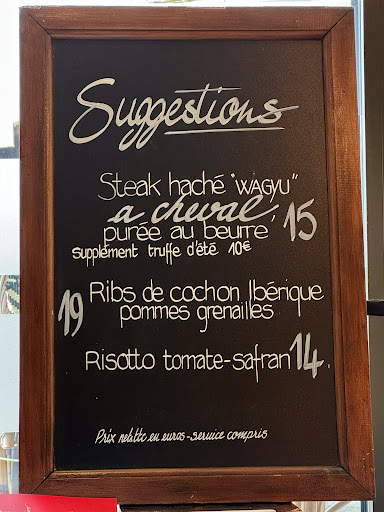 Suggestions
Steak haché "WAGYU"
a cheval,
purée au beurre 15
supplément truffe d'été 10€
Ribs de cochon Ibérique
19 pommes grenailles
Risotto tomate-safran 14.
Prix net ttc en euros - service compris